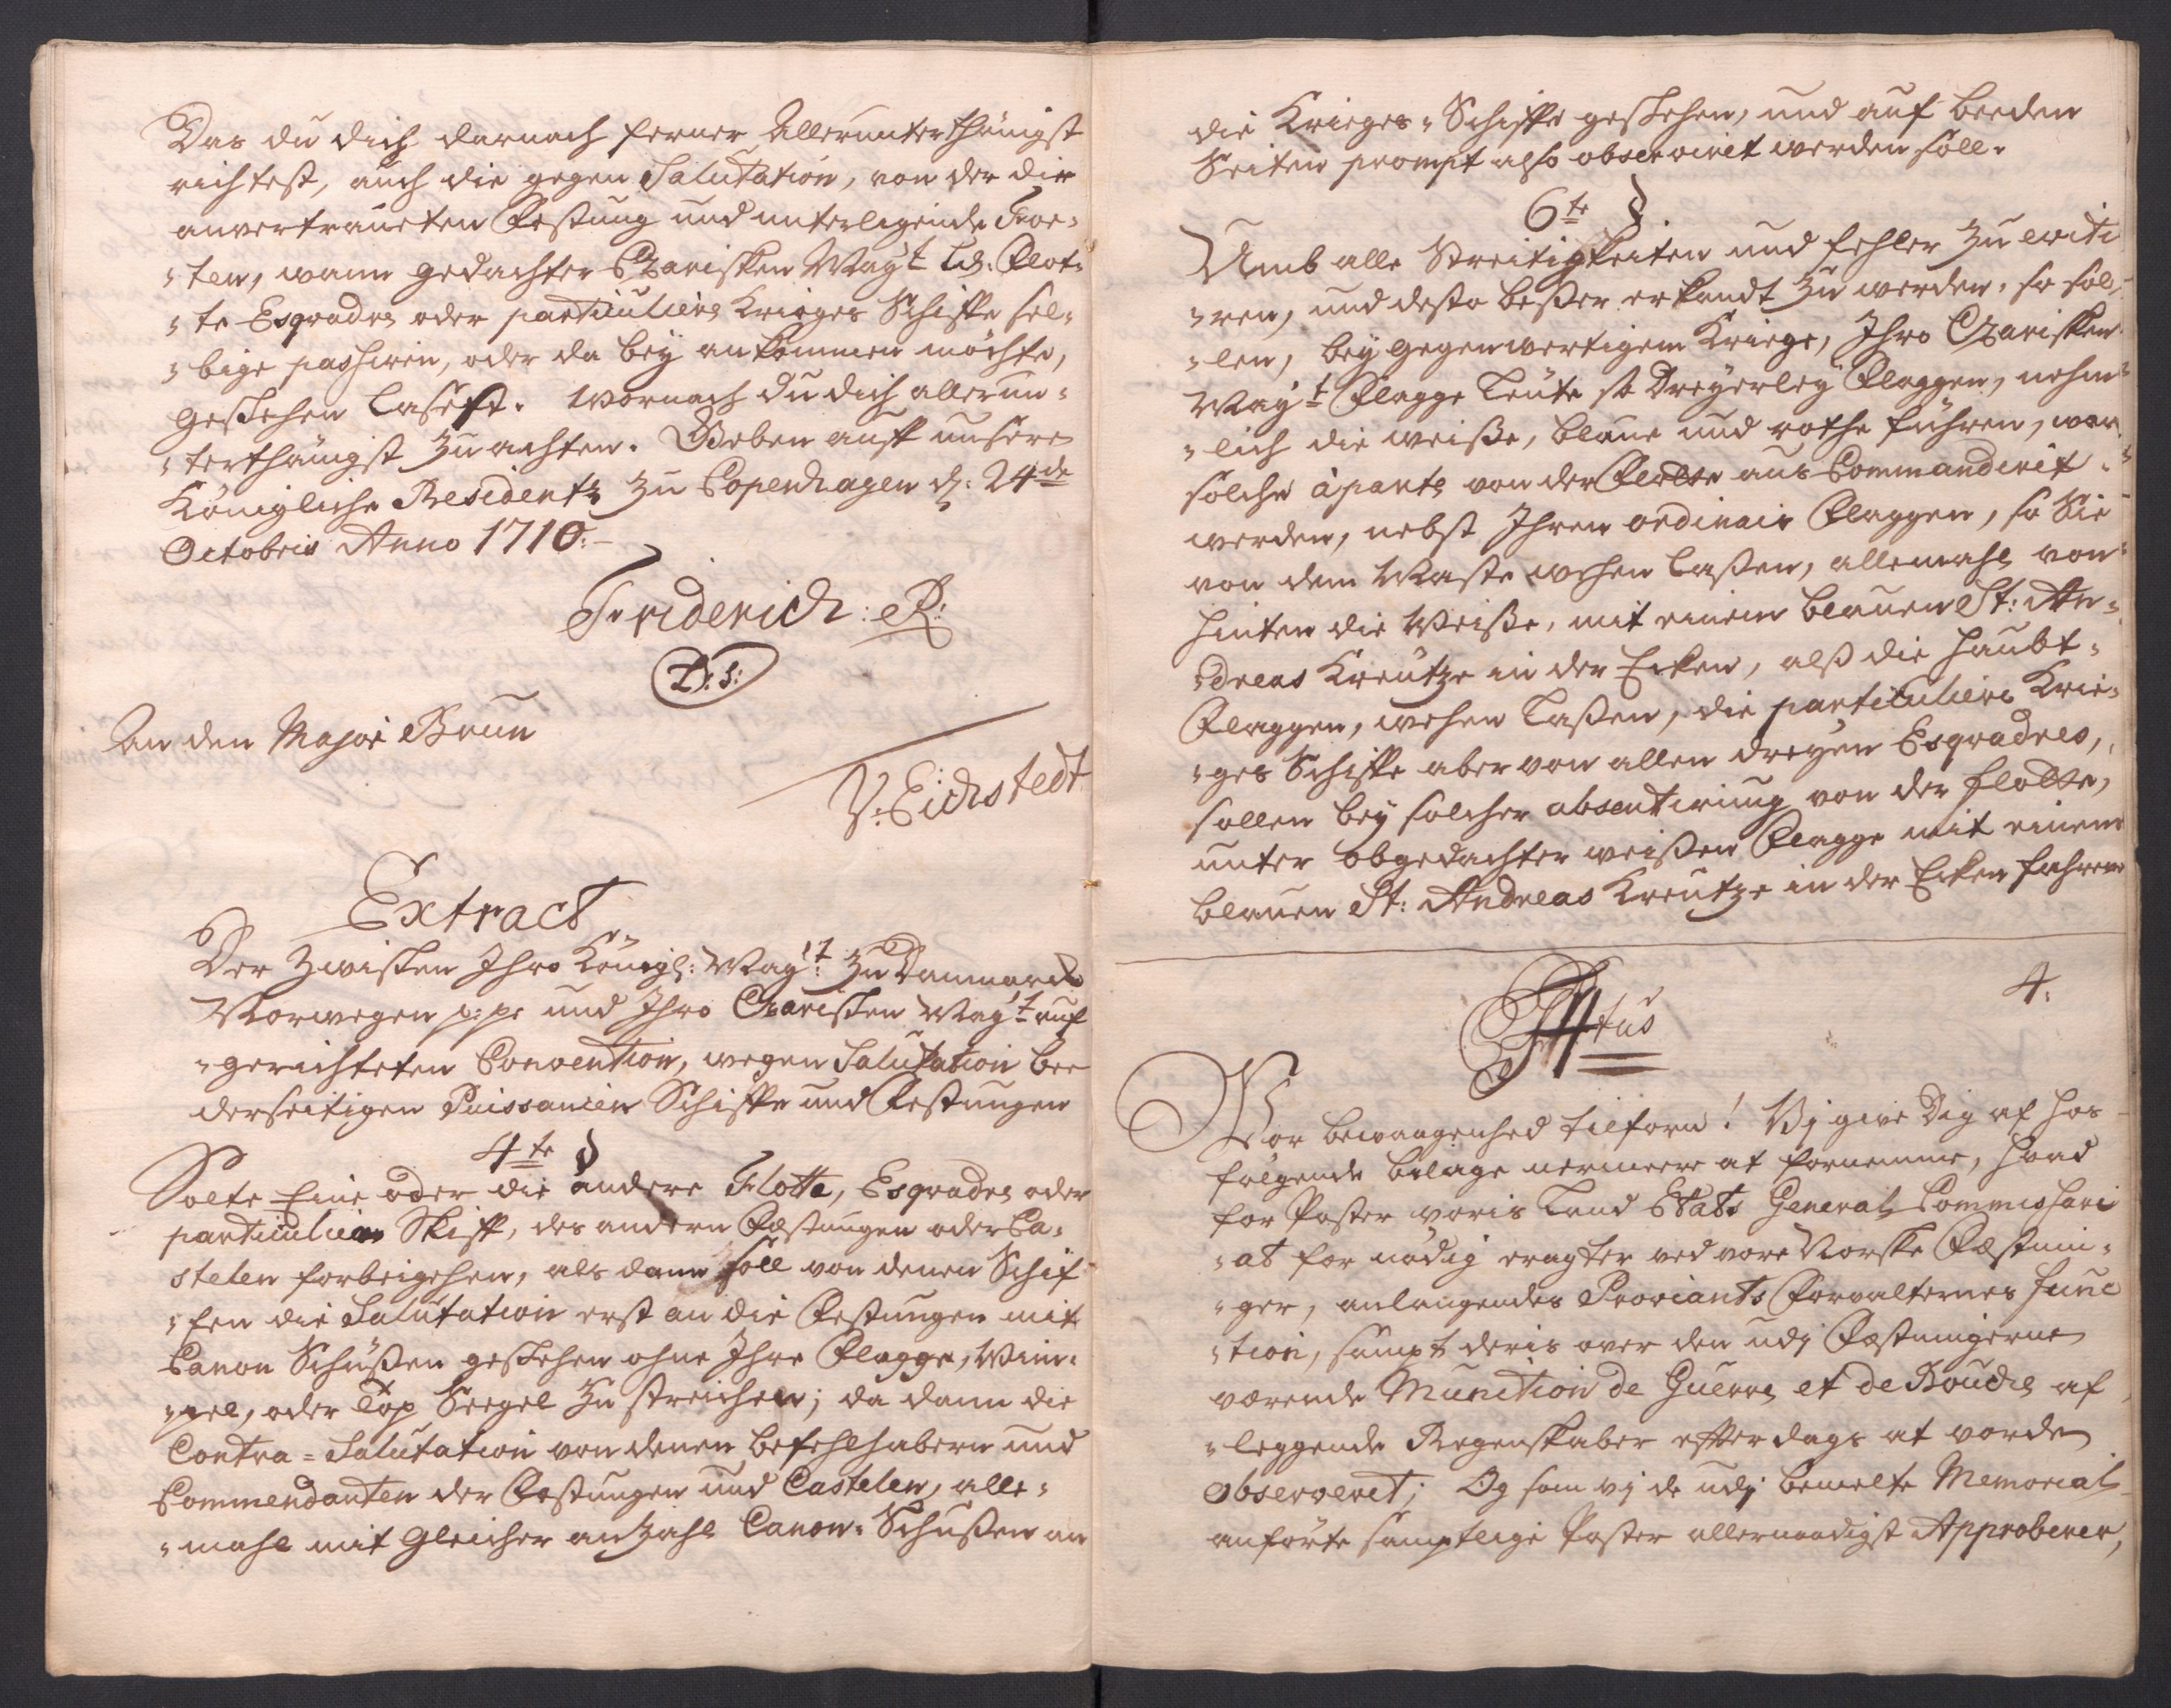 Das du dich darnach ferner Allerunterthänigst
richtest, auch die gegen Salutation, von der dir
anvertraueten Festung und unterligende For-
-ten, wann gedachter Czarisken May.t Flot-
-te Esqvadre oder particuliere Krieges Schiffe sel-
-bige passiren, oder da bey ankommen möchte,
geschehen lasest. Wornach du dich allerun-
-terthänigst zu achten. Geben auff unsere
Königliche Residentz zu Copenhagen d: 24de
Octobris Anno 1710.
Friderich: R:
L: S:
An den Major Brun
V: Eichstedt
Extract
Der Zwischen Ihro Königl: May.t zu Dannmarck
Norwegen p: p: und Ihro Czarischen May.t auf
-gerichteten Convention, wegen Salutation bee
derseitigen Puissancien Schiffe und Festungen
4te §
Solte Eine oder die andere Flotte, Esqvadre oder
particulier Skiff, des andern Festungen oder Ca-
stelen forbeigehen, als dann soll von denen Schif
-fen die Salutation erst an die Festungen mit
Canon Schüßen geschehen ohne Ihre Flagge, Wim-
-pel, oder Top Seegel zu streichen; da dann die
Contra-Salutation von denen befehlhabern und
Commendanten der Festungen und Castelen, alle-
-mahl mit gleicher anzahl Canon-Schußen an
die Krieges-Schiffe geschehen, und auf beeden
Seiten prompt also observiret werden soll.
6te §
Umb alle Streitigkeiten und fehler zu eviti
-ren, und desto beßer erkandt zu werden, so sol-
-len, bey gegenwertigem Kriege, Ihro Czarisken
May.t Flagge Leute so dreyerley Flaggen, nehm-
-lich die weiße, blaue und rothe führen, wan
solche àparte von der Flotte aus Commandirit
werden, nebst Ihren ordinair Flaggen, so Sie
von dem Maste wehen laßen, allemahl von
hinten die Weiße, mit einem blauen St: An-
-dreas Kreutze in der Ecken, alß die haubt-
Flaggen, wehen laßen, die particuliere Krie-
-ges Schiffe aber von allen dreyen Esqvadres,
sollen bey solcher absentirung von der flotte,
unter obgedachter weißen Flagge mit einem
blauen St: Andreas Kreutze in der Ecken fahren
4.
Vor bevaagenhed tilforn! Vj give Dig af hos
følgende bilage nermeere at fornemme, hvad
for Poster voris Land Etats General Commissari
-at for nödig eragter ved vore Norske Fæstnin-
-ger, anlangendes Proviants Forvalternes func
-tion, sampt deris over den udj Fæstningerne
værende Munition de Guerre et de Boucle af
-leggende Regenskaber efterdags at vorde
observeret; Og som vj de udj bemelte Memorial
anförte samptlige Poster allernaadigst Approberer,